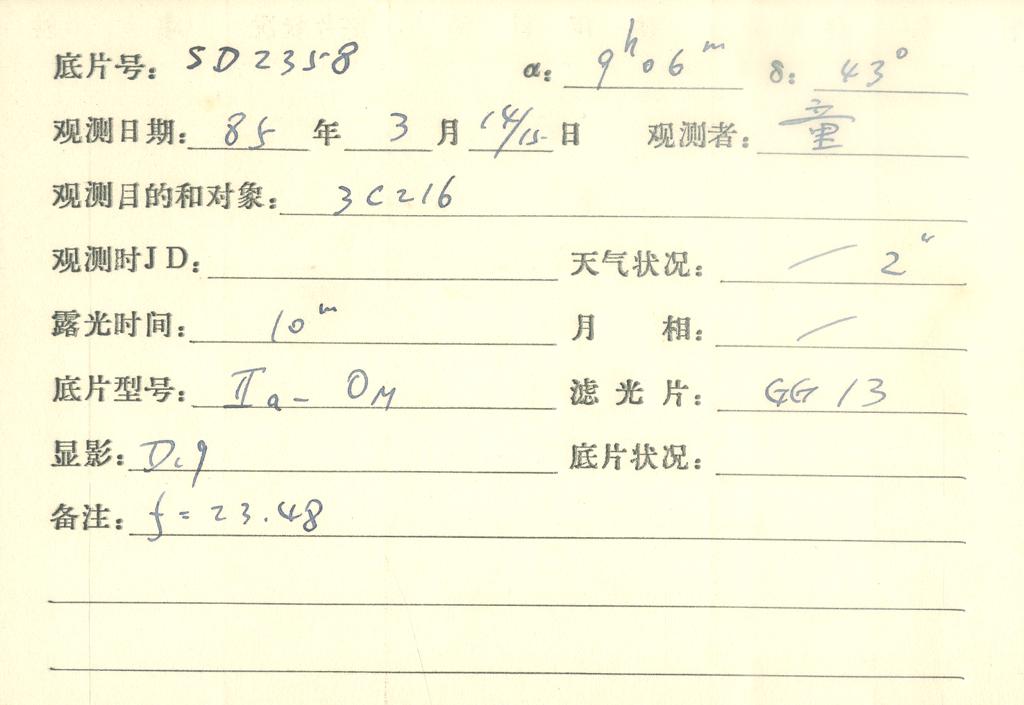 底片号: SD2358 α: 9ʰ06ᵐ δ: 43°
观测日期: 85 年 3 月 14/15 日 观测者: 童
观测目的和对象: 3C216
观测时JD: 天气状况: 一 2"
露光时间: 10ᵐ 月 相: 一
底片型号: IIa-OM 滤光片: GG13
显影: D.19 底片状况:
备注: f=23.48